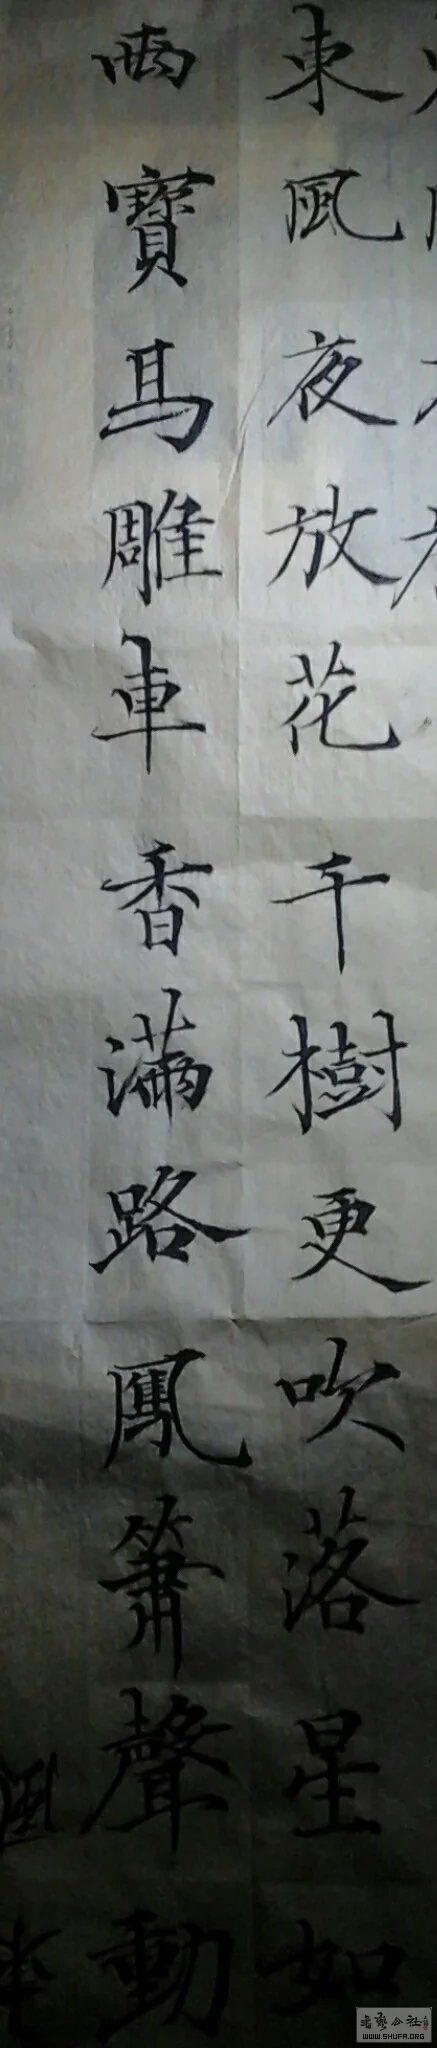 東風夜放花千樹更吹落星如
雨寶馬雕車香滿路鳳簫聲動
WWW.SHUFA.ORG